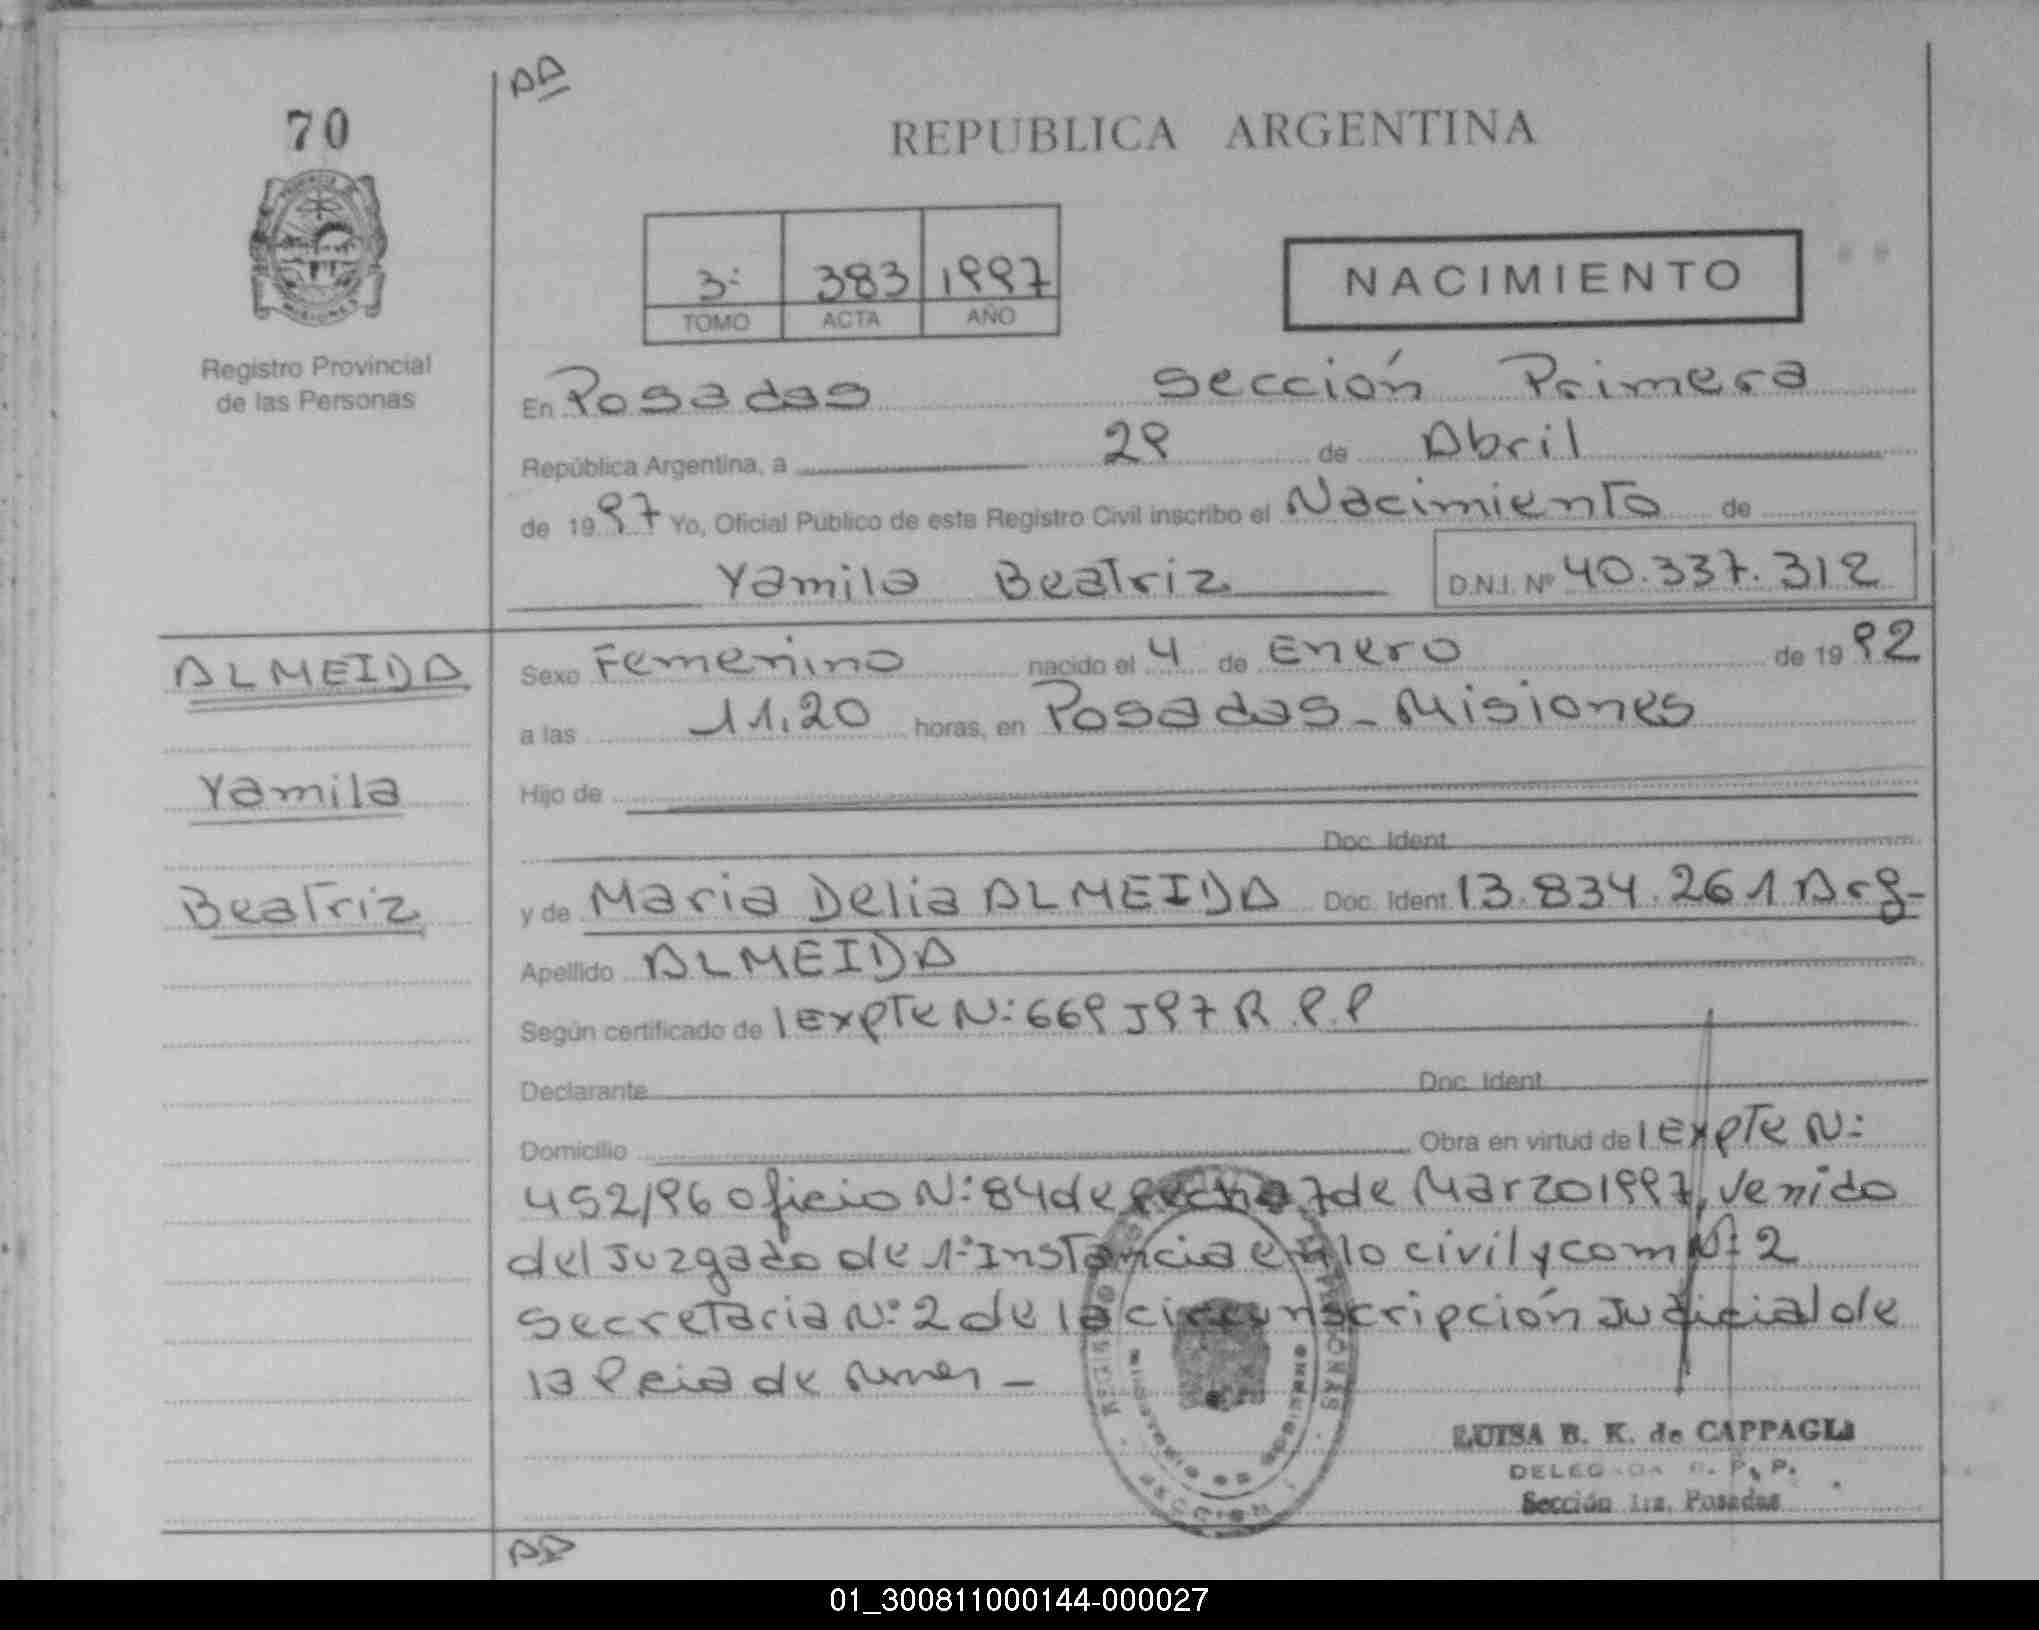 70
REPUBLICA ARGENTINA
3º 383 1997
TOMO ACTA AÑO
NACIMIENTO
Registro Provincial
de las Personas
En Posadas Sección Primera
República Argentina, a 29 de Abril
de 1997 Yo, Oficial Público de este Registro Civil inscribo el Nacimiento de
Yamila Beatriz D.N.I. Nº 40.337.312
ALMEIDA
Yamila
Beatriz
Sexo Femenino nacido el 4 de Enero de 1992
a las 11,20 horas, en Posadas - Misiones
Hijo de
Doc. Ident.
y de Maria Delia ALMEIDA Doc. Ident. 13.834.261 Arg-
Apellido ALMEIDA
Según certificado de Expte Nº: 669 J97 R.P.P
Declarante Doc. Ident.
Domicilio Obra en virtud de Expte Nº:
452/96 oficio Nº: 84 de fecha 7 de Marzo 1997, venido
del Juzgado de 1º Instancia en lo civil y com Nº 2
secretaria Nº: 2 de la circunscripción Judicial de
la Pcia de
LUISA B. K. de CAPPAGLI
DELEGADA R. P. P.
Sección 1ra. Posadas
01_300811000144-000027